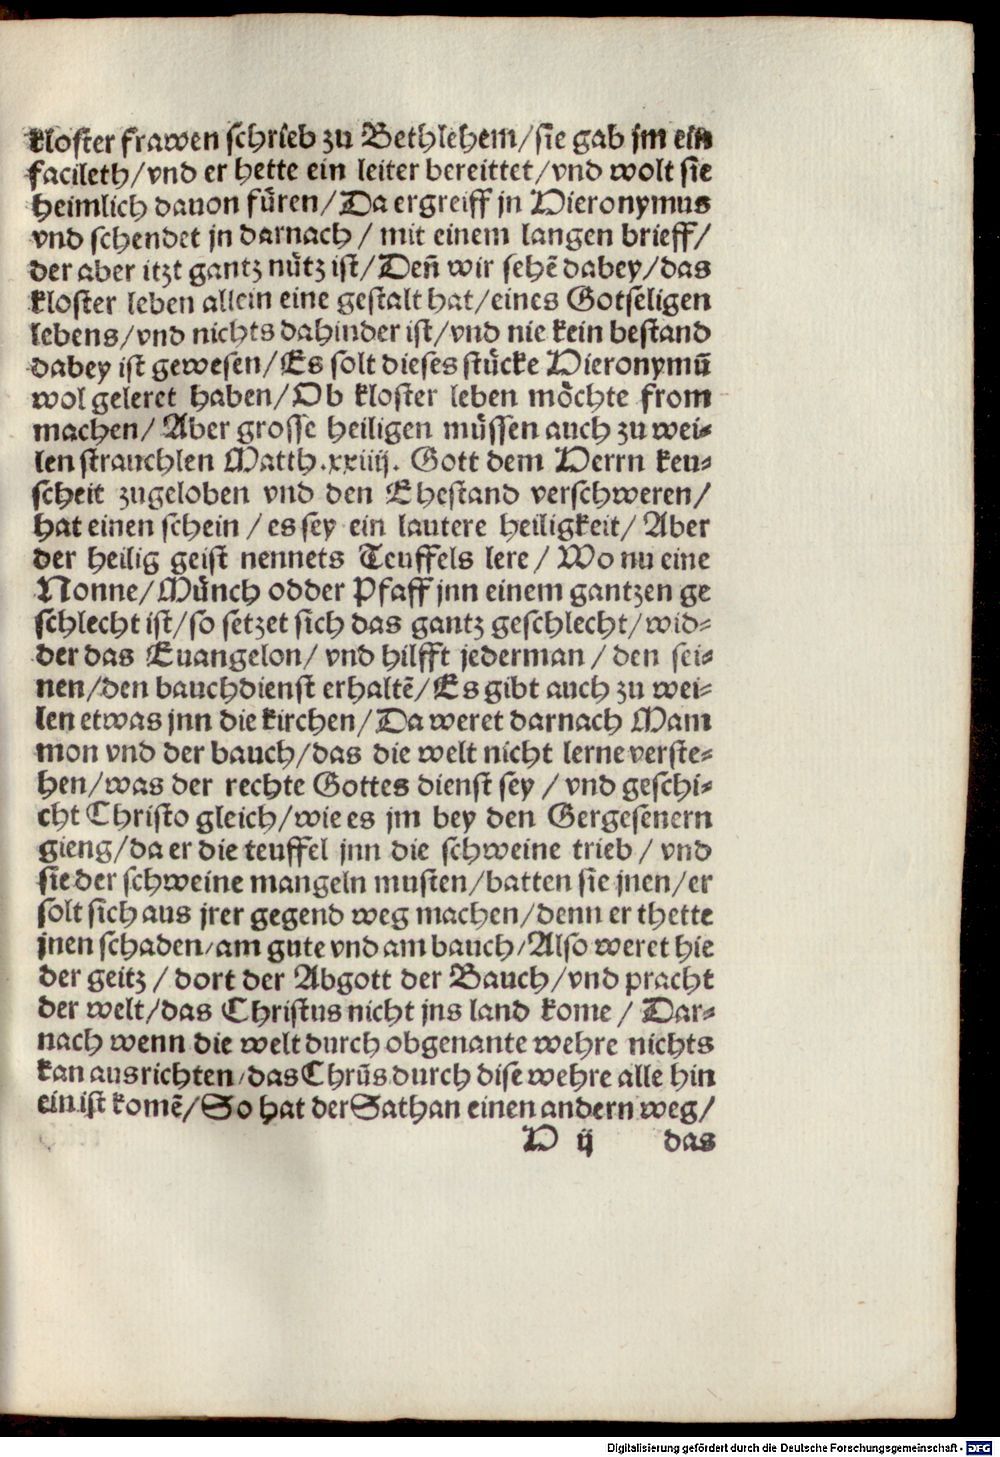 kloster frawen schrieb zu Bethlehem/sie gab jm ein
facileth/vnd er hette ein leiter bereittet/vnd wolt sie
heimlich dauon füren/Da ergreiff jn Hieronymus
vnd schendet jn darnach/ mit einem langen brieff/
der aber itzt gantz nütz ist/Deñ wir sehẽ dabey/das
kloster leben allein eine gestalt hat/eines Gotseligen
lebens/vnd nichts dahinder ist/vnd nie kein bestand
dabey ist gewesen/Es solt dieses stücke Hieronymũ
wol geleret haben/Ob kloster leben möchte from
machen/ Aber grosse heiligen müssen auch zu wei-
len strauchlen Matth.xxiiij. Gott dem Herrn keu-
scheit zugeloben vnd den Ehestand verschweren/
hat einen schein / es sey ein lautere heiligkeit/ Aber
der heilig geist nennets Teuffels lere / Wo nu eine
Nonne/Münch odder Pfaff jnn einem gantzen ge
schlecht ist/so setzet sich das gantz geschlecht/wid-
der das Euangelon/ vnd hilfft jederman / den sei-
nen/den bauchdienst erhaltẽ/Es gibt auch zu wei-
len etwas jnn die kirchen/Da weret darnach Mam
mon vnd der bauch/das die welt nicht lerne verste-
hen/was der rechte Gottes dienst sey / vnd geschi-
cht Christo gleich/wie es jm bey den Gergesenern
gieng/da er die teuffel jnn die schweine trieb / vnd
sie der schweine mangeln musten/batten sie jnen/er
solt sich aus jrer gegend weg machen/denn er thette
jnen schaden/am gute vnd am bauch/Also weret hie
der geitz / dort der Abgott der Bauch/vnd pracht
der welt/das Christus nicht jns land kome / Dar-
nach wenn die welt durch obgenante wehre nichts
kan ausrichten/das Chrũs durch dise wehre alle hin
ein ist komẽ/So hat der Sathan einen andern weg/
H ij das
Digitalisierung gefördert durch die Deutsche Forschungsgemeinschaft - DFG